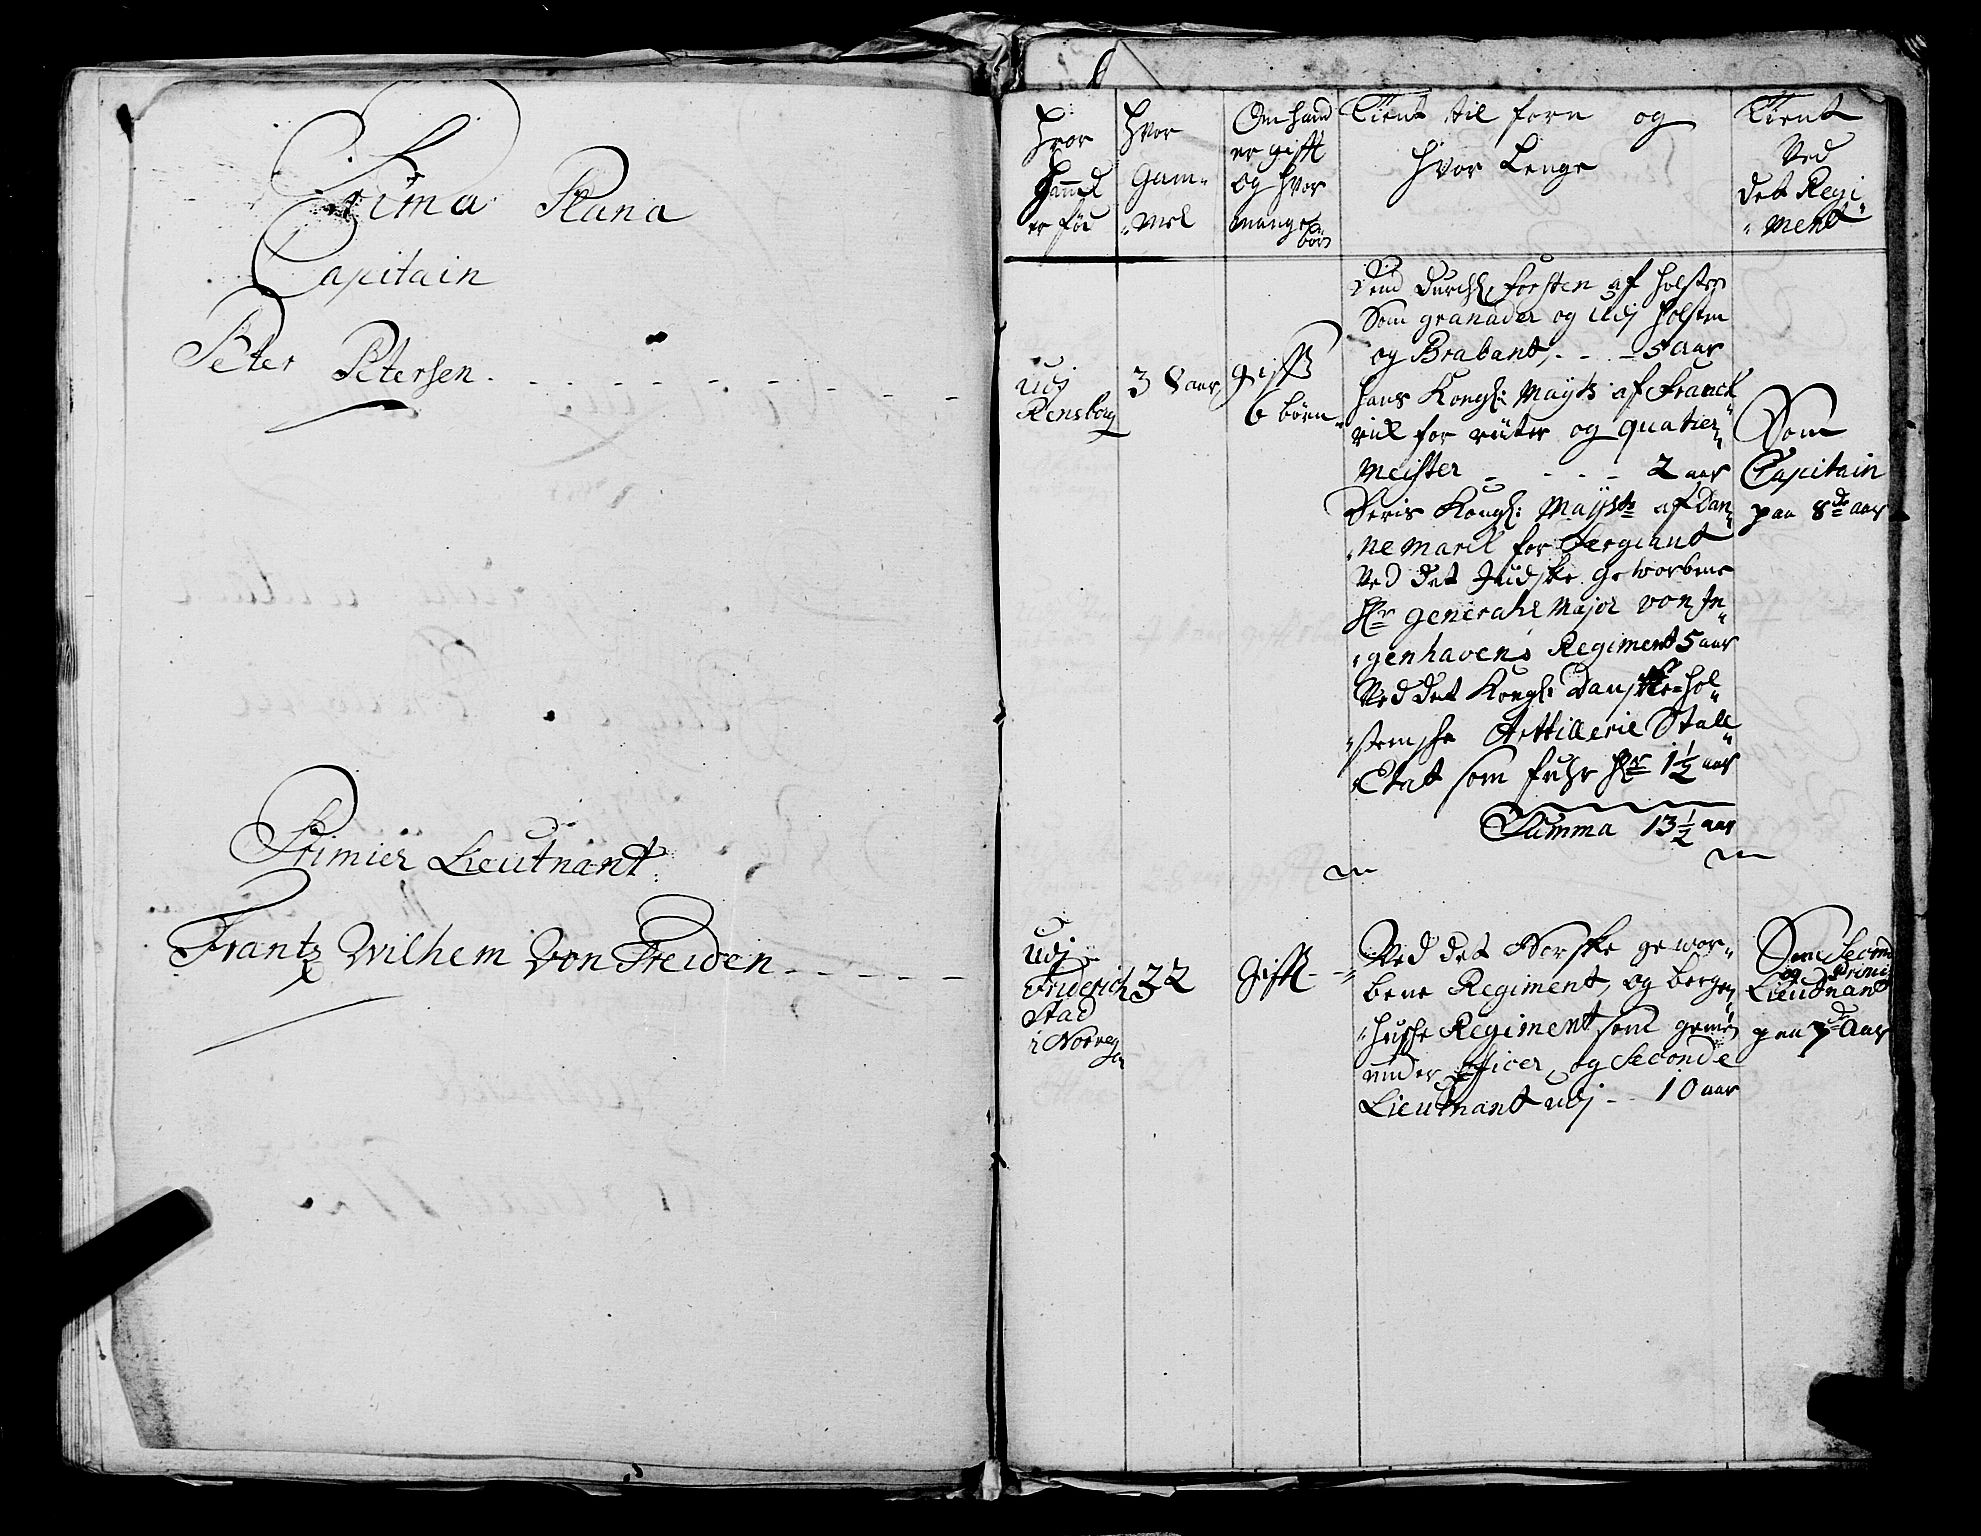 Prima Plana
Capitain
Peter Petersen.
Primier Lieutnant
Frantz Wilhem Von Freiden
Hvor
hand
er föd
Hvor
Gam-
mel
Om hand
er gifft
og hvor
mange
börn
Tient til forn og
Hvor Lenge
Tient
Ved
det Regi
ment
udj
Rensborg
38 aar
gifft
6 börn
Som granader og udj Holsten
og Brabant, - - - 5 aar
hans Kongl: Mayts af Franck
rick for rüter og quatier
Meister - - - - 2 aar
Deris Kongl: Mayts af Dan
nemarck for Sergiant
Ved det Judske geworbene
Hr General Major von In
genhavens Regiment 5 aar
Ved det Kongl: Danske-Hol
stensche Arttillerie Stall
Etat som 1½ aar
Summa 13½ aar
Som
Capitain
paa 8de aar
udj
Friderich
Stad
i Norveg
32
gifft
Ved det Norske gewor-
bene Regiment, og bergen
husche Regiment som gemen
under officer, og Seconde
Lieutnant udj - - 10 aar
Som Second
og Primi
Lieutnant
paa 7de Aar